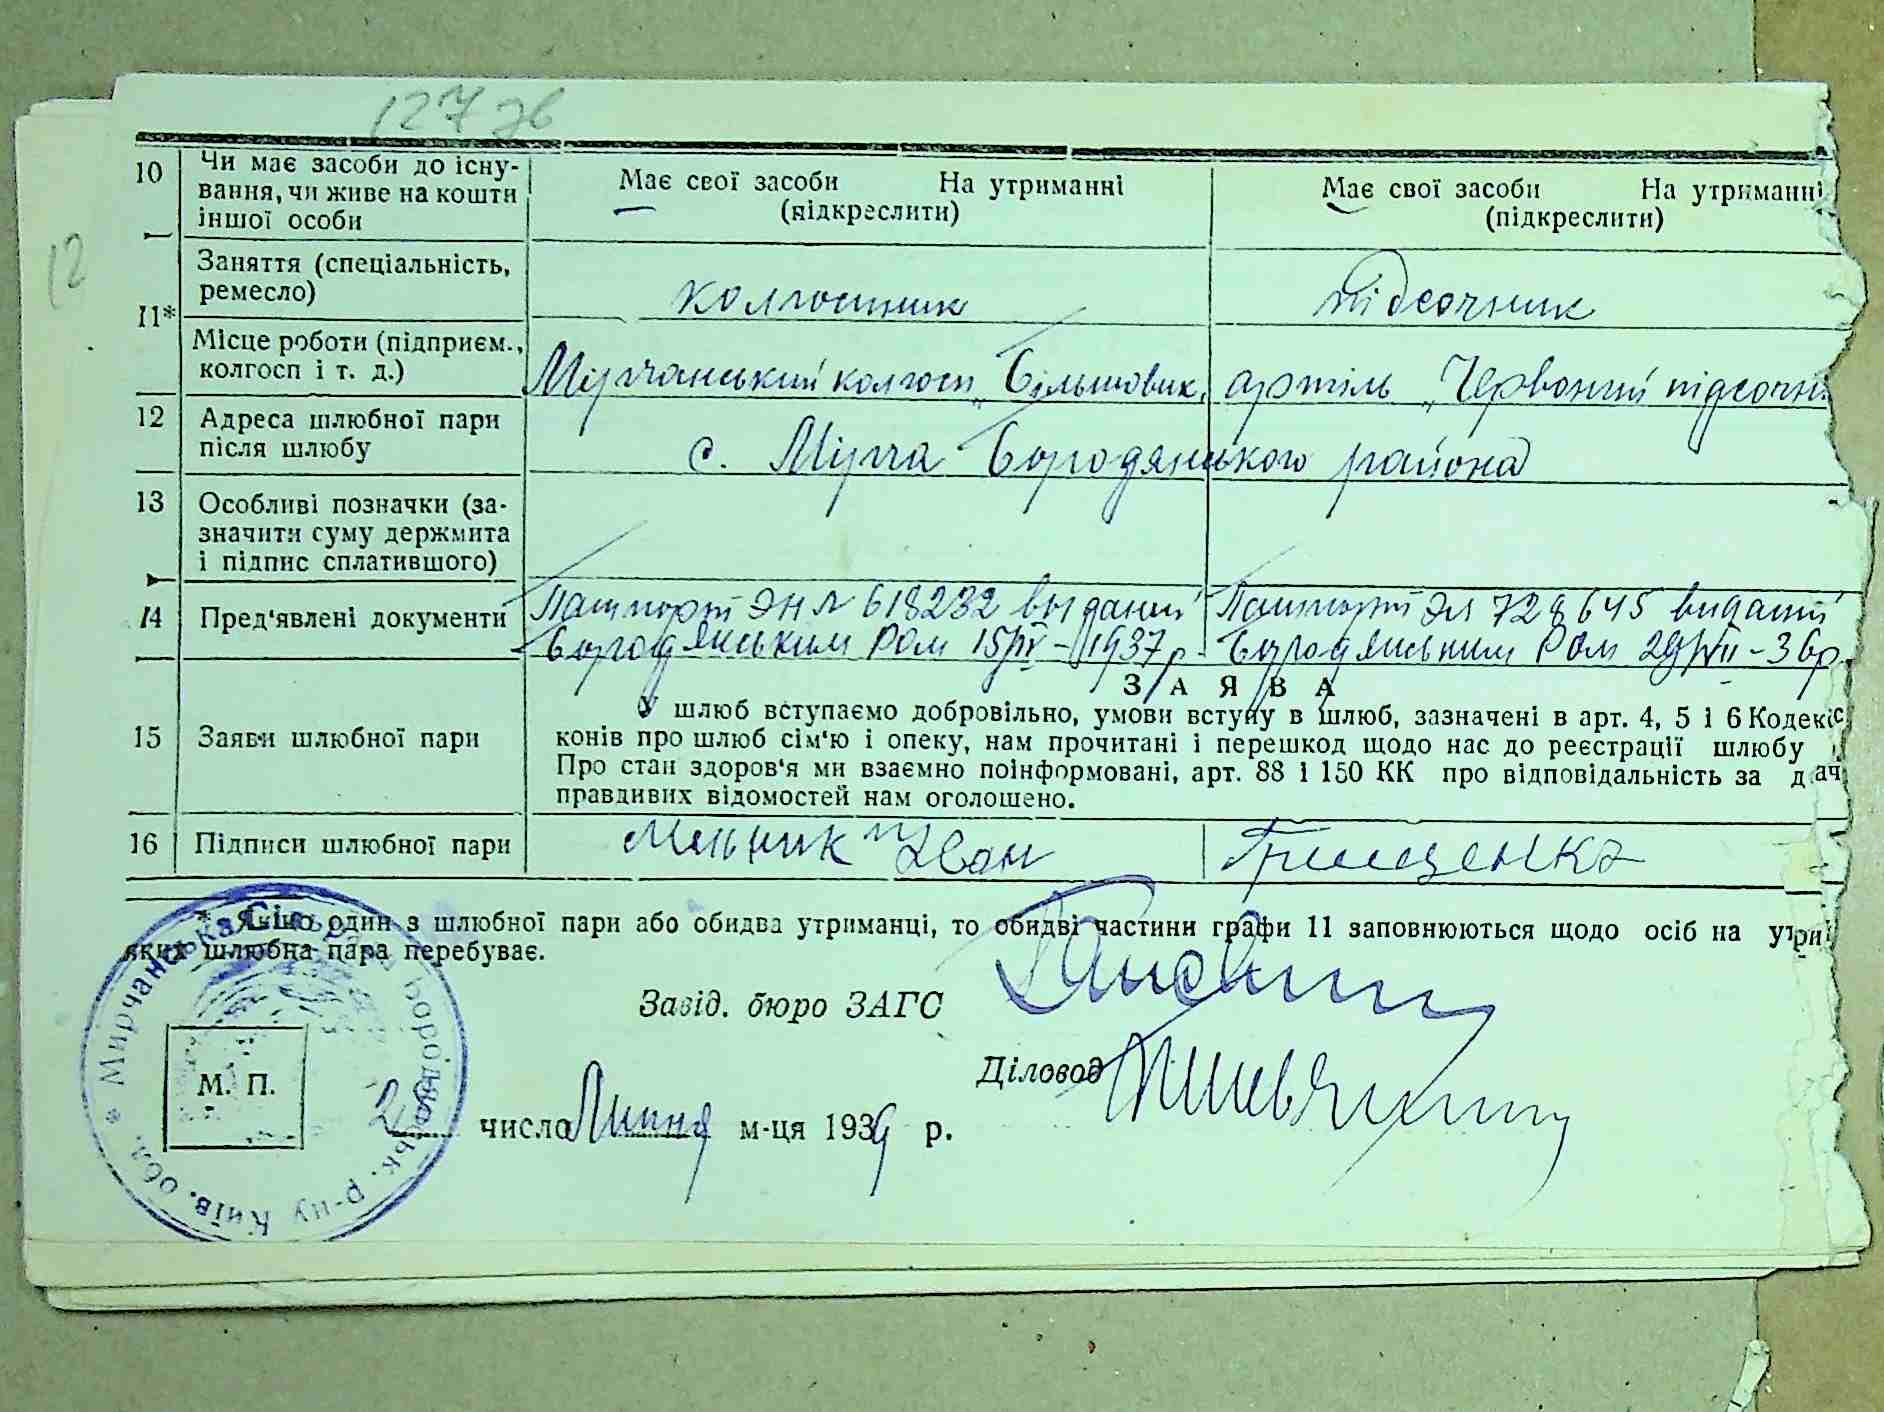 127 зв
12
10 Чи має засоби до існу-
вання, чи живе на кошти
іншої особи
Має свої засоби На утриманні
(підкреслити)
Має свої засоби На утриманні
(підкреслити)
11*
Заняття (спеціальність,
ремесло)
колгосник
підсочник
Місце роботи (підприєм.,
колгосп і т. д.)
Мірчанський колгосп „Більшовик„
артіль „Червоний підсочн.
12 Адреса шлюбної пари
після шлюбу
с. Мірча Бородянського района
13 Особливі позначки (за-
значити суму держмита
і підпис сплатившого)
14 Пред'явлені документи
Пашпорт ЭН № 618232 выданий
Бородянським РОМ 15/IV-1937 р.
Пашпорт 728645 виданий
Бородянським РОМ 29/VII-36р.
15 Заяви шлюбної пари
ЗАЯВА
У шлюб вступаємо добровільно, умови вступу в шлюб, зазначені в арт. 4, 5 і 6 Кодекс
конів про шлюб сім'ю і опеку, нам прочитані і перешкод щодо нас до реєстрації шлюбу
Про стан здоров'я ми взаємно поінформовані, арт. 88 і 150 КК про відповідальність за дач
правдивих відомостей нам оголошено.
16 Підписи шлюбної пари
Мельник Іван
Грищенко
* Якщо один з шлюбної пари або обидва утриманці, то обидві частини графи 11 заповнюються щодо осіб на утри
яких шлюбна пара перебуває.
Завід. бюро ЗАГС
Діловод
М. П.
2 число Липня м-ця 1939 р.
* Мирчанська Сіл Бородянськ. р-ну Київ. обл.